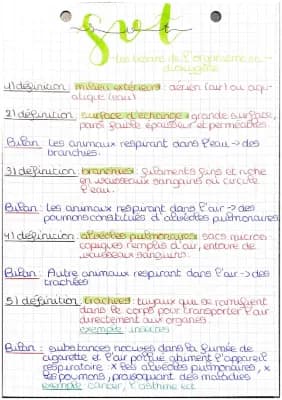 svt
Les besoins de l'organisme en
dioxygène
1) définition : milieu extérieur : aérien (air) ou aqu-
atique (eau)
2) définition : surface d'échange : grande surface,
paroi faible épaisseur et perméables
Bilan : Les animaux respirant dans l'eau → des
branchies.
3) définition : branchies : filaments fins et riche
en vaisseaux sanguins où circule
l'eau.
Bilan : Les animaux respirant dans l'air → des
poumons constitués d'alvéoles pulmonaires
4) définition : alvéoles pulmonaires : sacs micros
copiques remplis d'air, entouré de
vaisseaux sanguins.
Bilan : Autre animaux respirant dans l'air → des
trachées
5) définition : trachées : tuyaux que se ramifient
dans le corps pour transporter l'air
directement aux organes.
exemple : insectes
Bilan : substances nocives dans la fumée de
cigarette et l'air pollué abiment l'appareil
respiratoire : x les alvéoles pulmonaires, x
les poumons, provoquant des maladies
exemple : cancer, l'asthme ect